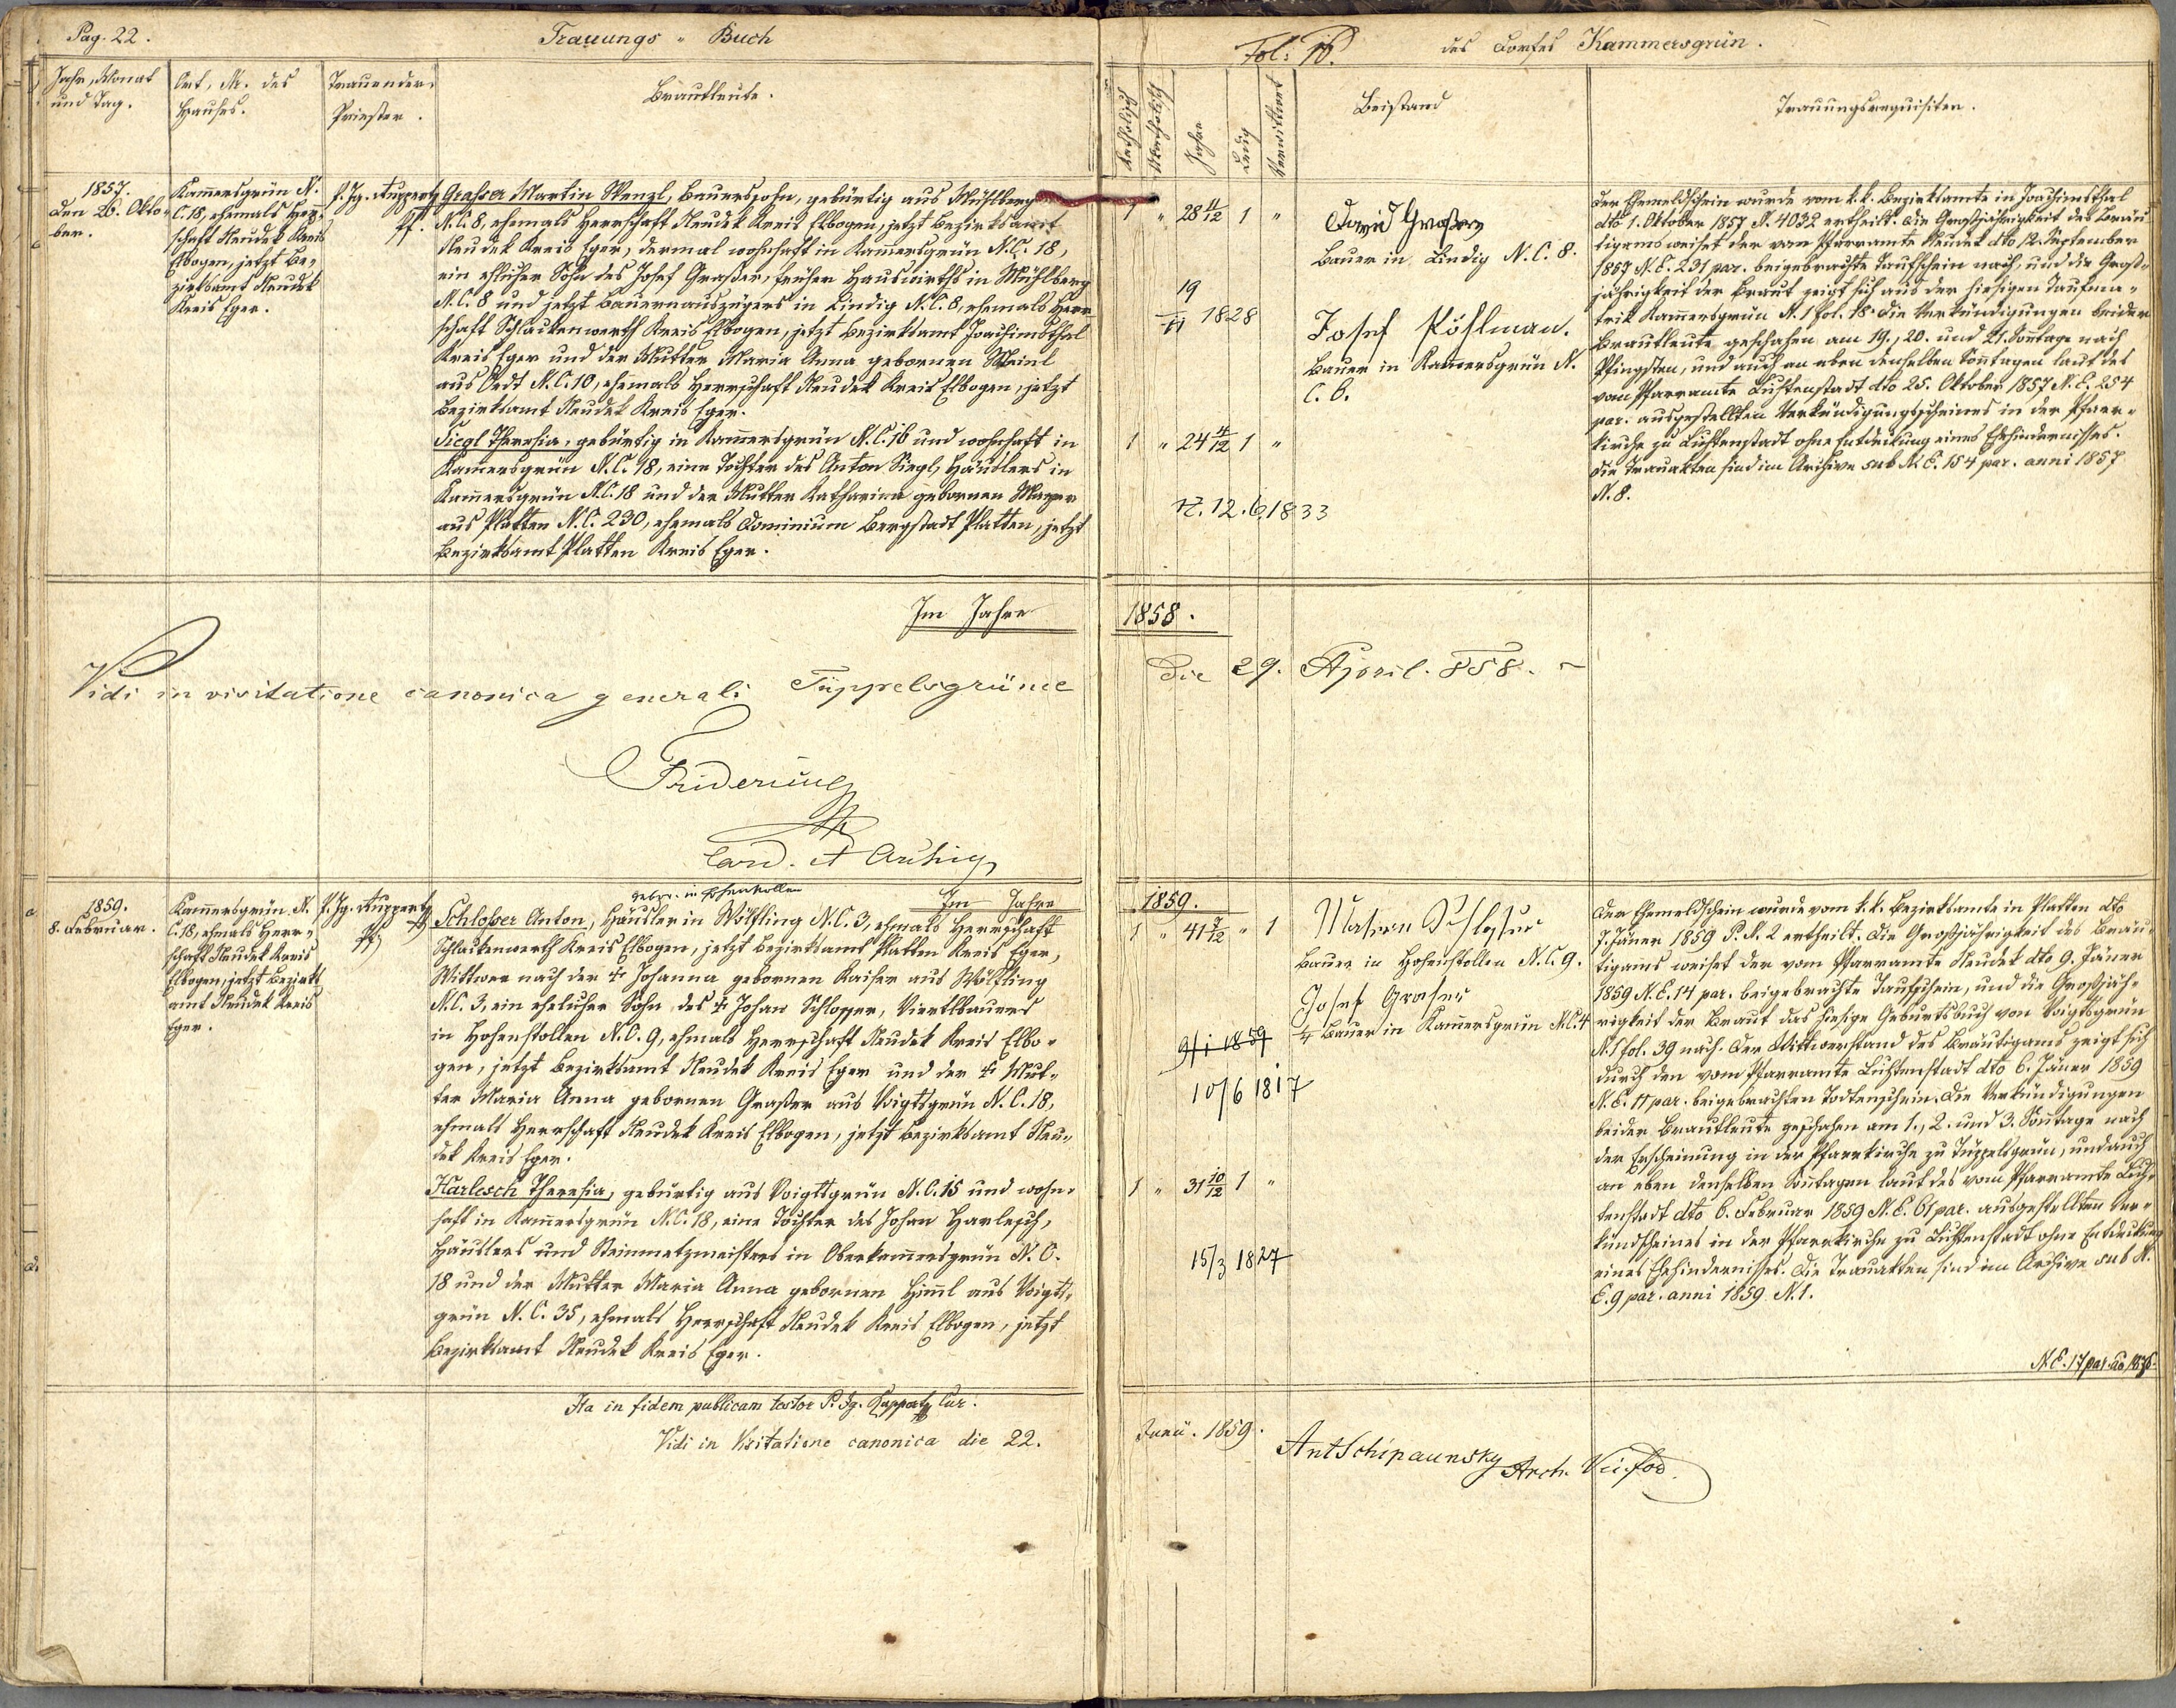 Pag. 22.
Trauungs - Buch
Fol: 16.
des Dorfes Kammersgrün.
Jahr, Monat
und Tag.
Ort, Nr. des
Hauses.
Trauender
Priester.
Brautleute.
Katholisch
Akatholisch
Jahre
Ledig
Verwittwet
Beistand
Trauungsrequisiten.
1857.
den 26. Okto-
ber.
Kam̄ersgrün N.
C. 18, ehemals Herr-
schaft Neudek Kreis
Elbogen, jetzt Be-
zirksamt Neudek
Kreis Eger.
P. Ig. Ruppertz
Pf.
Graßer Martin Wenzl, Bauerssohn, gebürtig aus Mühlberg
N.C. 8, ehemals Herrschaft Neudek Kreis Elbogen, jetzt Bezirksamt
Neudek Kreis Eger, dermal wohnhaft in Kam̄ersgrün N.C. 18,
ein ehlicher Sohn des Josef Graßer, früher Hauswirths in Mühlberg
N.C. 8 und jetzt Bauernauszügers in Lindig N.C. 8, ehemals Herr-
schaft Schlackenwerth Kreis Elbogen, jetzt Bezirksamt Joachimsthal
Kreis Eger und der Mutter Maria Anna gebornen Meinl
aus Oedt N.C. 10, ehemals Herrschaft Neudek Kreis Elbogen, jetzt
Bezirksamt Neudek Kreis Eger.
Siegl Theresia, gebürtig in Kam̄ersgrün N.C. 16 und wohnhaft in
Kam̄ersgrün N.C. 18, eine Tochter des Anton Siegl, Händlers in
Kam̄ersgrün N.C. 18 und der Mutter Katharina gebornen Mayer
aus Platten N.C. 230, ehemals Dominium Bergstadt Platten, jetzt
Bezirksamt Platten Kreis Eger.
1 " 28 11/12 1 "
19
/11 1828
1 " 24 4/12 1 "
12. 6. 1833
David Graßer
Bauer in Lindig N.C. 8.
Josef Pöhlman.
Bauer in Kam̄ersgrün N.
C. 6.
Der Ehemeldschein wurde vom k.k. Bezirksamte in Joachimsthal
dto 1. Oktober 1857 N. 4032 ertheilt. Die Großjährigkeit des Bräu-
tigams weiset der vom Pfarramte Neudek dto 12. September
1857 N.E. 231 par. beigebrachte Taufschein nach, und die Groß-
jährigkeit der Braut zeigt sich aus der hiesigen Taufma-
trik Kam̄ersgrün N. 1 fol. 18. Die Verkündigungen beider
Brautleute geschahen am 19., 20. und 21. Son̄tage nach
Pfingsten, und auch an eben denselben Son̄tagen laut des
vom Pfarramte Lichtenstadt dto 25. Oktober 1857 N.E. 254
par. ausgestellten Verkündigungsscheines in der Pfarr-
kirche zu Lichtenstadt ohne Entdeckung eines Ehehindernisses.
Die Trauakten sind im Archive sub N.E. 154 par. anni 1857
N. 8.
Im Jahre 1858.
Vidi in visitatione canonica generali Tüppelsgrünae Die 29. April. 858.
Card.
1859.
8. Februar.
Kam̄ersgrün N.
C. 18, ehmals Herr-
schaft Neudek Kreis
Elbogen, jetzt Bezirks
amt Neudek Kreis
Eger.
P. Ig. Ruppertz
Pf
gebor. in Hohenstollen
Im Jahre 1859.
Schloßer Anton, Häusler in Wölfling N.C. 3, ehmals Herrschaft
Schlackenwerth Kreis Elbogen, jetzt Bezirksamt Platten Kreis Eger,
Wittwer nach der † Johanna gebornen Kaiser aus Wölfling
N.C. 3, ein ehelicher Sohn des † Johan Schlosser, Viertlbauers
in Hohenstollen N.C. 9, ehmals Herrschaft Neudek Kreis Elbo-
gen, jetzt Bezirksamt Neudek Kreis Eger und der † Mut-
ter Maria Anna gebornen Graßer aus Voigtsgrün N.C. 18,
ehmals Herrschaft Neudek Kreis Elbogen, jetzt Bezirksamt Neu-
dek Kreis Eger.
Harlesch Theresia, gebürtig aus Voigtsgrün N.C. 15 und wohn-
haft in Kam̄ersgrün N.C. 18, eine Tochter des Johan Harlesch,
Häuslers und Steinmetzmeisters in Oberkam̄ersgrün N.C.
18 und der Mutter Maria Anna gebornen Him̄l aus Voigts-
grün N.C. 35, ehmals Herrschaft Neudek Kreis Elbogen, jetzt
Bezirksamt Neudek Kreis Eger.
1 " 41 7/12 " 1
9/1 1859
10/6 1817
1 " 31 10/12 1 "
15/3 1827
Schlosser
Bauer in Hohenstollen N.C. 9.
Josef Graser
Bauer in Kam̄ersgrün N.C. 4
Der Ehemeldschein wurde vom k.k. Bezirksamte in Platten dto
7. Jäner 1859 P.N. 2 ertheilt. Die Großjährigkeit des Bräu-
tigam̄s weiset der vom Pfarramte Neudek dto 9. Jäner
1859 N.E. 14 par. beigebrachte Taufschein, und die Großjäh-
rigkeit der Braut das hiesige Geburtsbuch von Voigtsgrün
N. 1 fol. 39 nach. Der Wittwerstand des Bräutigams zeigt sich
durch den vom Pfarramte Lichtenstadt dto 6. Jäner 1859
N.E. 11 par. beigebrachten Todtenschein. Die Verkündigungen
beider Brautleute geschahen am 1., 2. und 3. Son̄tage nach
der Erscheinung in der Pfarrkirche zu Tüppelsgrün, und auch
an eben denselben Son̄tagen laut des vom Pfarramte Lich-
tenstadt dto 6. Februar 1859 N.E. 61 par. ausgestellten Ver-
kündscheines in der Pfarrkirche zu Lichtenstadt ohne Entdeckung
eines Ehehindernisses. Die Trauakten sind im Archive sub N.
E. 9 par. anni 1859 N. 1.
N.E. 17 par.
Ita in fidem publicam testor P. Ig. Ruppertz Cur.
Vidi in Visitatione canonica die 22. Junii. 1859.
Ant Schipaunsky Arch.